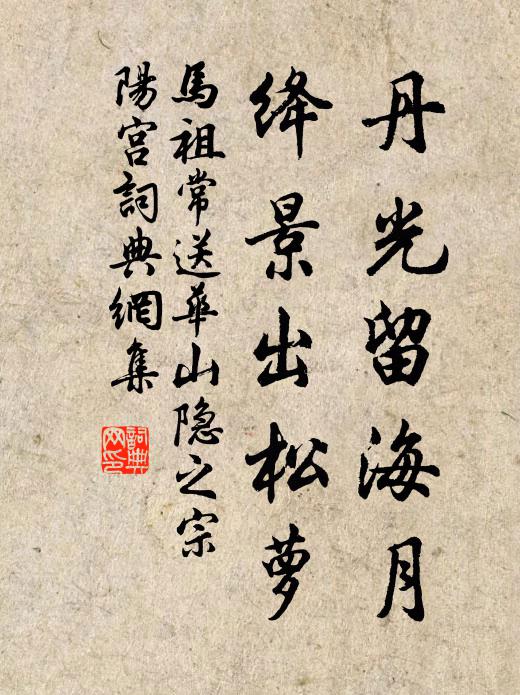 丹光留海月
绛景出松萝
馬祖常送華山隐之宗
陽宫詞典網集
詞典网印